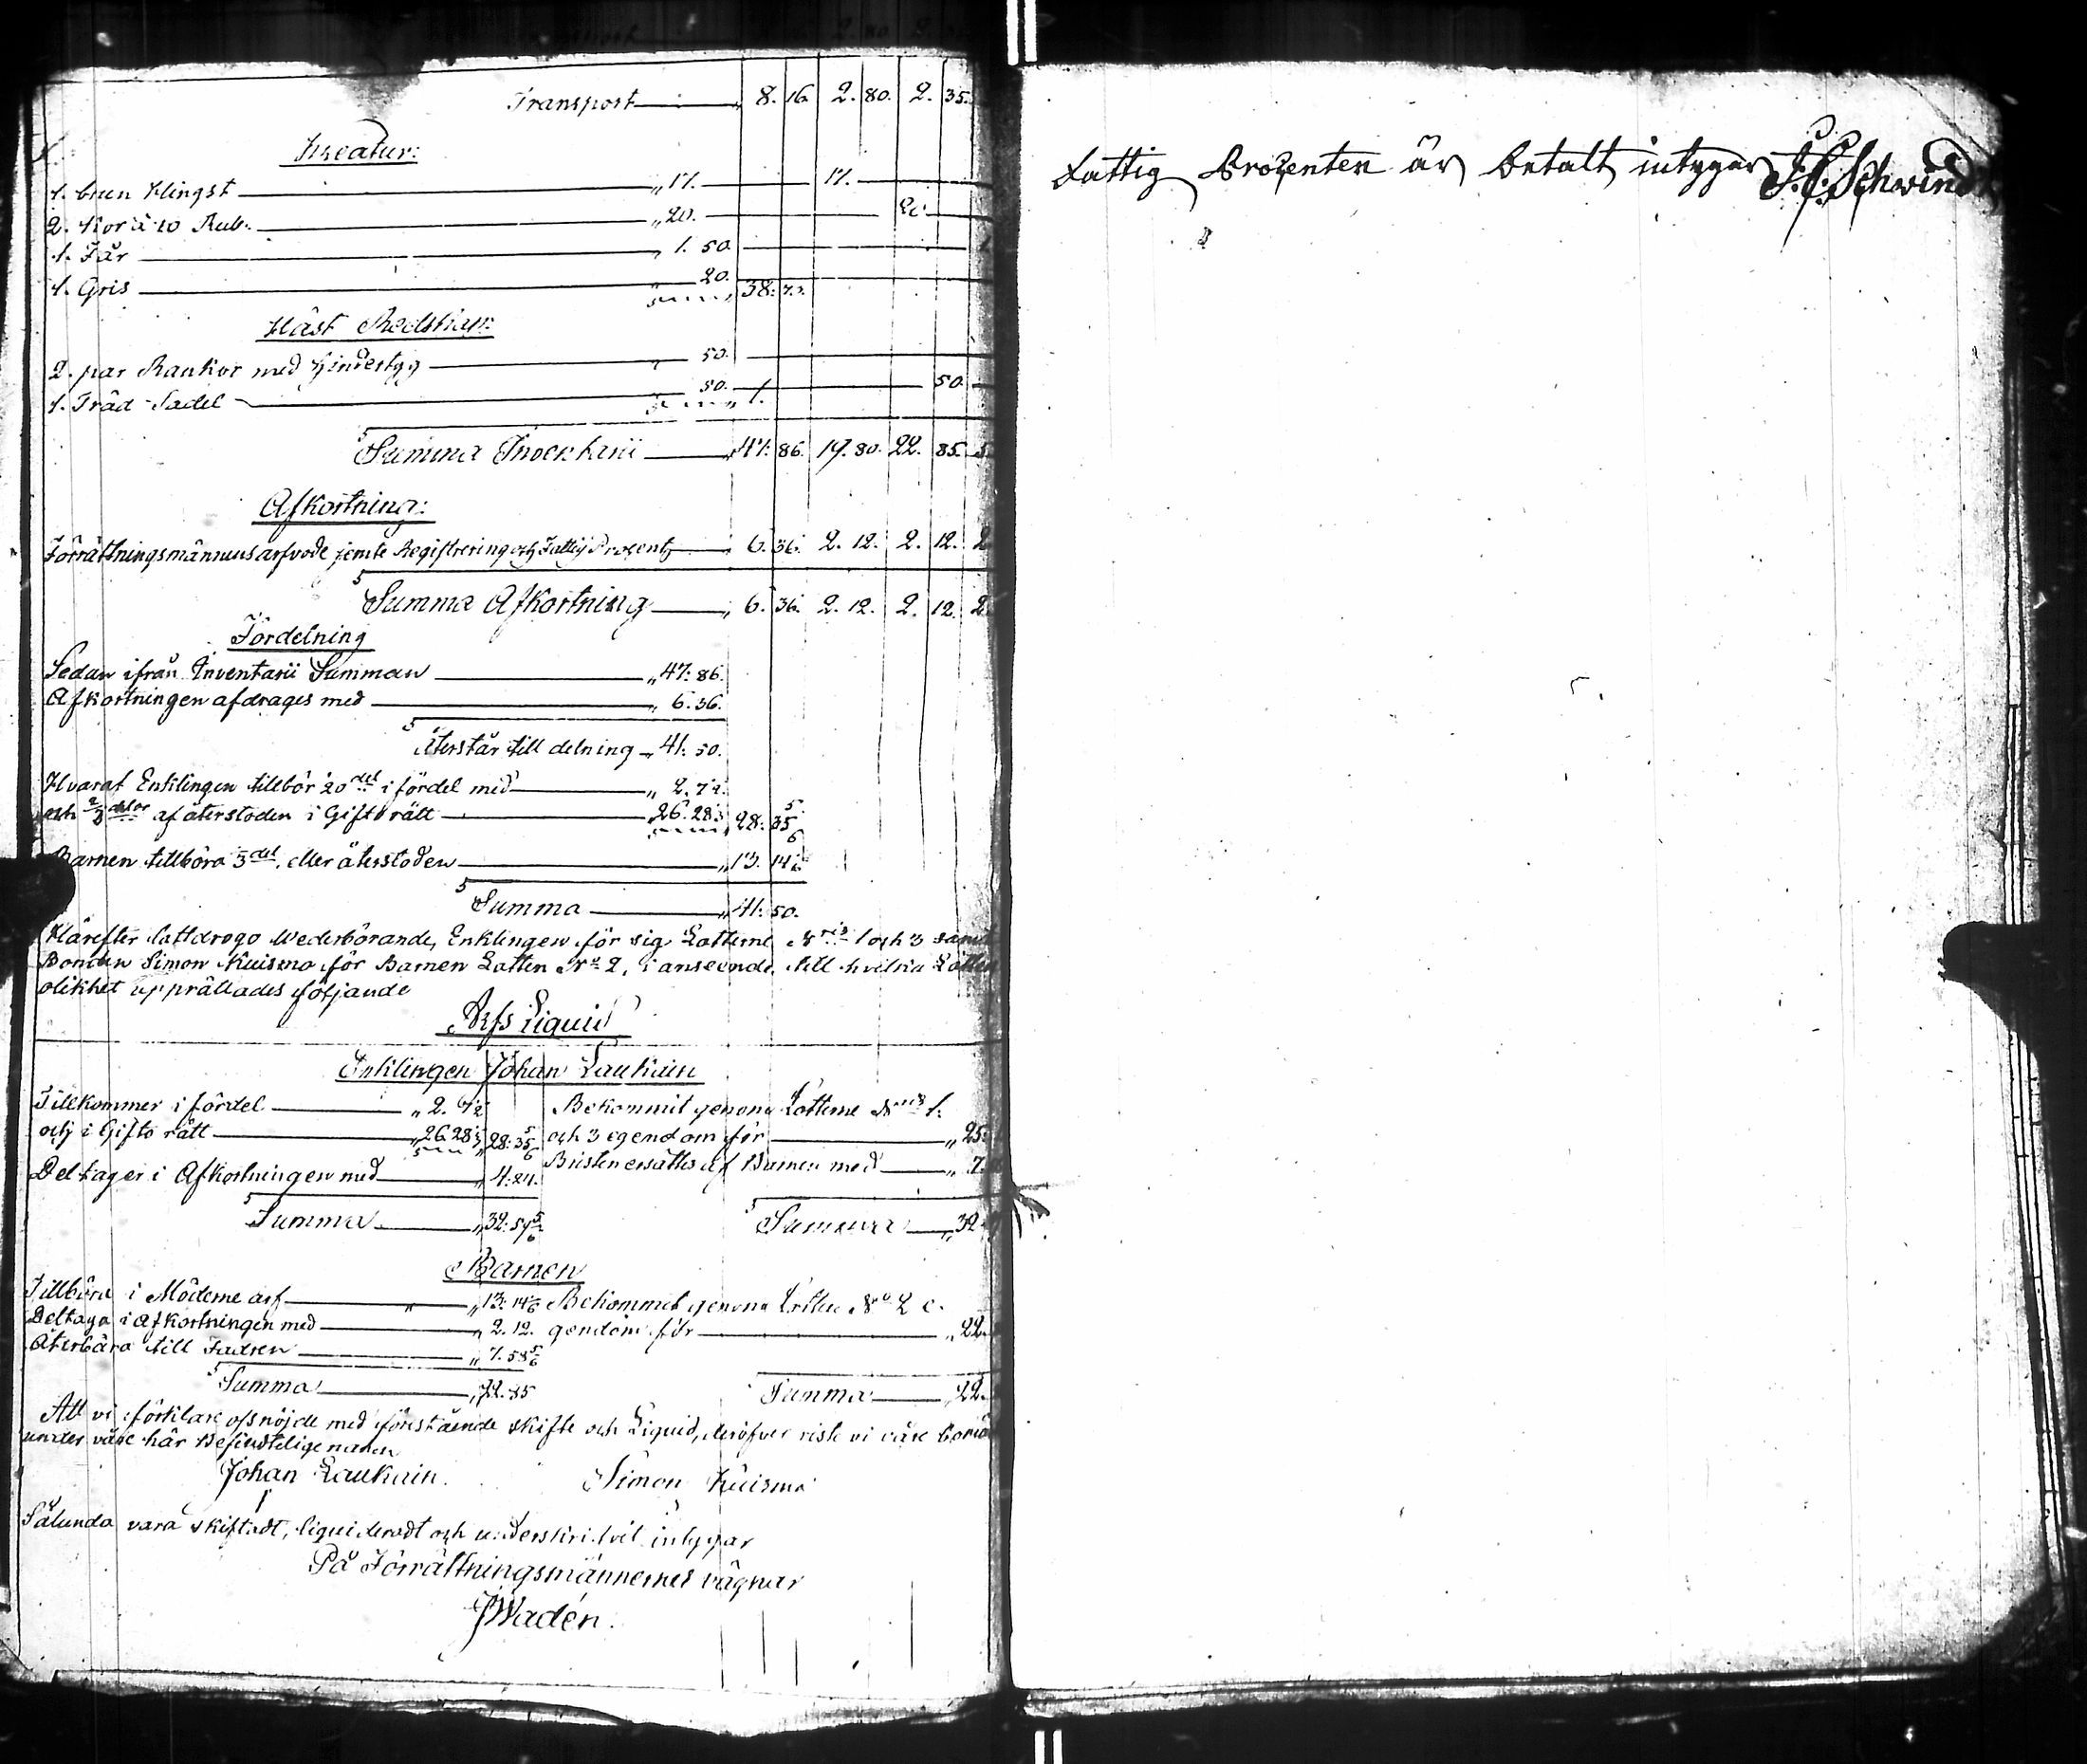 Transport „ 8. 16. 2. 80. 2. 35.
Kreatur:
1. brun Hingst „ 17. 17.
2. Kor à 10 Rub. „ 20. 20.
1. Får „ 1. 50.
1. Gris 20. 38. 70.
Häst Redskap:
2. par Rankor med 50.
1. Träd Sadel 50. 1. 50.
Summa Inventarii „ 47. 86. 19. 80. 22. 85. 5
Afkortning:
Förrättningsmännens arfvode jemte Registrering och Fattig Procent „ 6. 36. 2. 12. 2. 12. 2
Summa Afkortning „ 6. 36. 2. 12. 2. 12. 2
Fördelning
Sedan ifrån Inventarii Summan „ 47. 86.
Afkortningen afdrages med „ 6. 36.
Återstår till delning „ 41. 50.
Hvaraf Enklingen tillhör 20del i fördel med „ 2. 7½.
och 2/3 delar af återstoden i Giftorätt 26. 28⅓ 28. 35 5/6
Barnen tillhöra 3del. eller återstoden „ 13. 14 1/6
Summa „ 41. 50.
Härefter lattdrogo Wederbörande, Enklingen för sig Lotterne Nris 1 och 3 samt
Bonden Simon Kuisma för Barnen Lotten No 2, i anseende till hvilka Lotters
olikhet upprättades följande
Arfs Liquid
Enklingen Johan Laukain
Tillkommer i fördel „ 2. 7½ Bekommit genom Lotterne Nris 1.
och i Gifto rätt „ 26. 28⅓ 28. 35 5/6 och 3 egendom för „ 25.
Deltager i Afkortningen med „ 4. 24. Bristen ersättes af Barnen med „ 7.
Summa „ 32. 59 5/6 Summa „ 32.
Barnen
Tillhöra i Möderne arf „ 13. 14 1/6 Bekommit genom Lotten No 2 e-
Deltaga i Afkortningen med „ 2. 12. gendom för „ 22.
Återbära till Fadren „ 7. 58 5/6
Summa „ 22. 85 Summa „ 22.
Att vi förklare oss nöjde med förestående skifte och Liquid, deröfver riste vi våre bomärken
under våre här befindtelige namn
Johan Laukain. Simon Kuisma
Sålunda vara skiftadt, liquideradt och underskrifvit intygar
På Förrättningsmännernes vägnar
JWadén.
Fattig Procenten är betalt intygar Schwindt